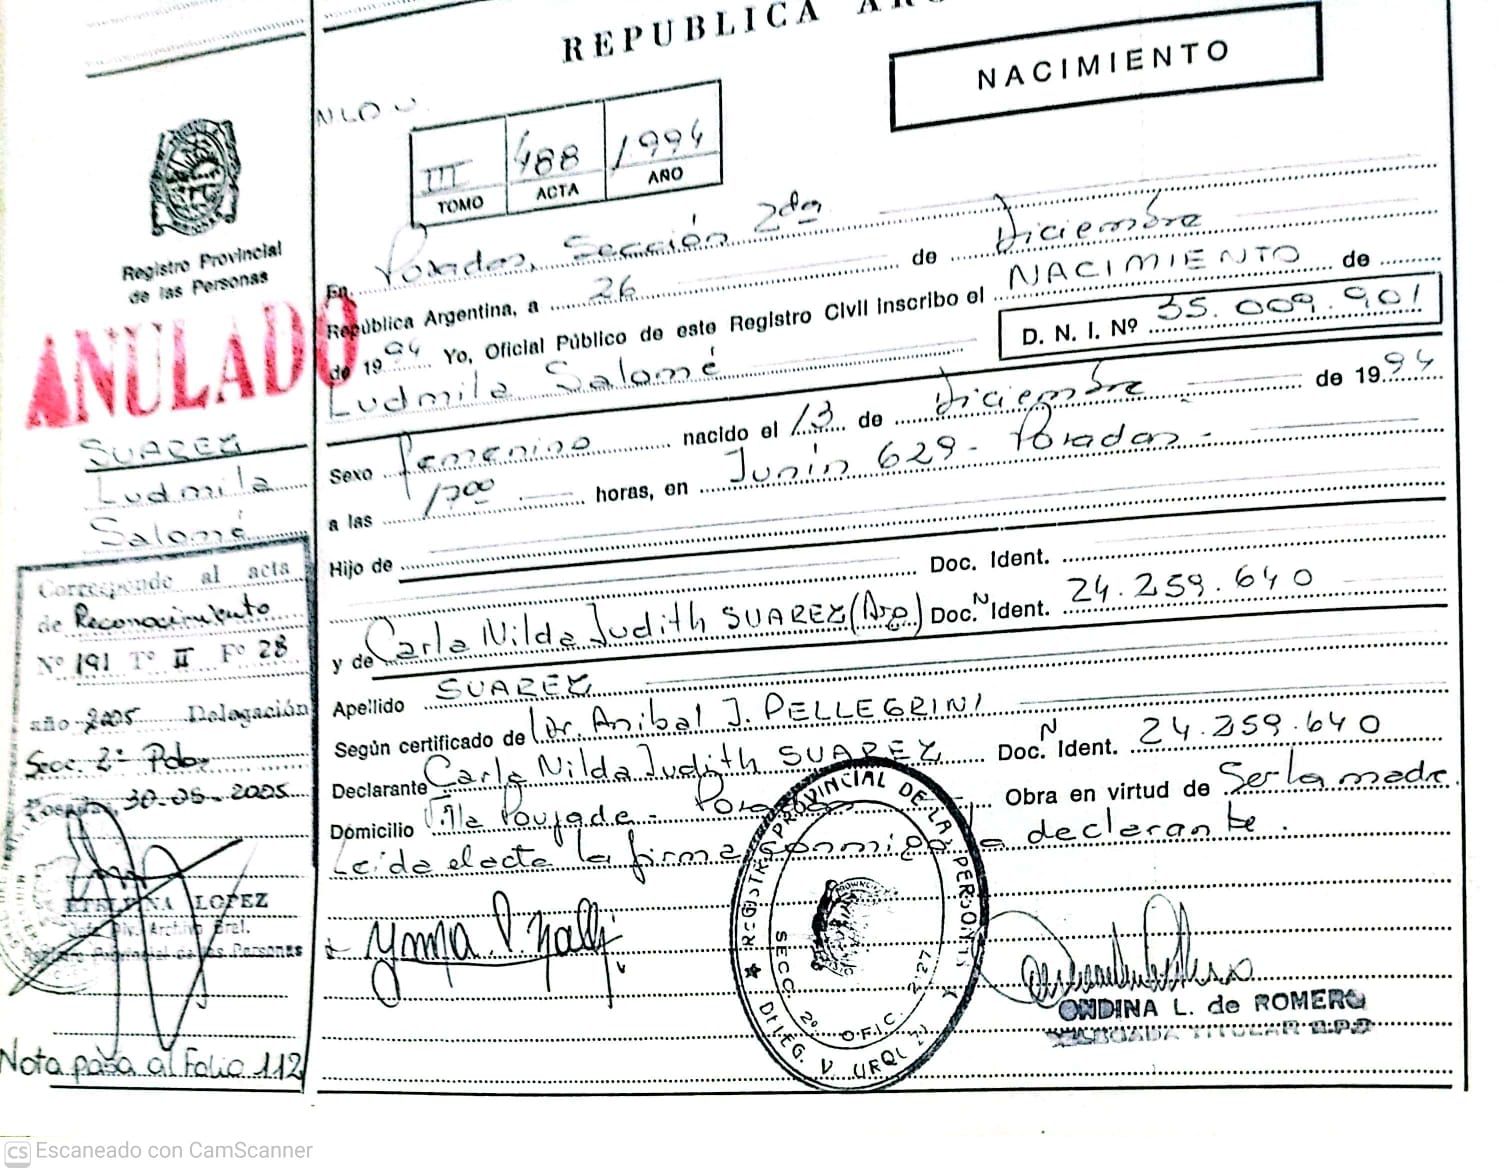 REPUBLICA
NACIMIENTO
III 488 1994
TOMO ACTA AÑO
Registro Provincial
de las Personas
ANULADO
SUAREZ
Ludmila
Salomé
Corresponde al acta
de Reconocimiento
Nº 191 Tº II Fº 28
año 2005 Delegación
Secc. 2ª Pdas
Posadas, 30-05-2005
LOPEZ
Div. Archivo Gral.
Registro Provincial de las Personas
Nota pasa al Folio 112
En Posadas, Sección 2da
República Argentina, a 26 de Diciembre
de 1994 Yo, Oficial Público de este Registro Civil inscribo el NACIMIENTO de
Ludmila Salomé D. N. I. Nº 35.009.901
Sexo femenino nacido el 13 de Diciembre de 1994
a las 17⁰⁰ horas, en Junín 629 - Posadas -
Hijo de
Doc. Ident.
y de Carla Nilda Judith SUAREZ (Arg) Doc. N Ident. 24.259.640
Apellido SUAREZ
Según certificado de Dr. Anibal J. PELLEGRINI
Declarante Carla Nilda Judith SUAREZ Doc. N Ident. 24.259.640
Domicilio Villa Poujade - Posadas Obra en virtud de Ser la madre.
Leida el acta la firma conmigo la declarante.
REGISTRO PROVINCIAL DE LAS PERSONAS
SECC. 2º OFIC. 227
DELEG.
ONDINA L. de ROMERO
TITULAR
CS Escaneado con CamScanner